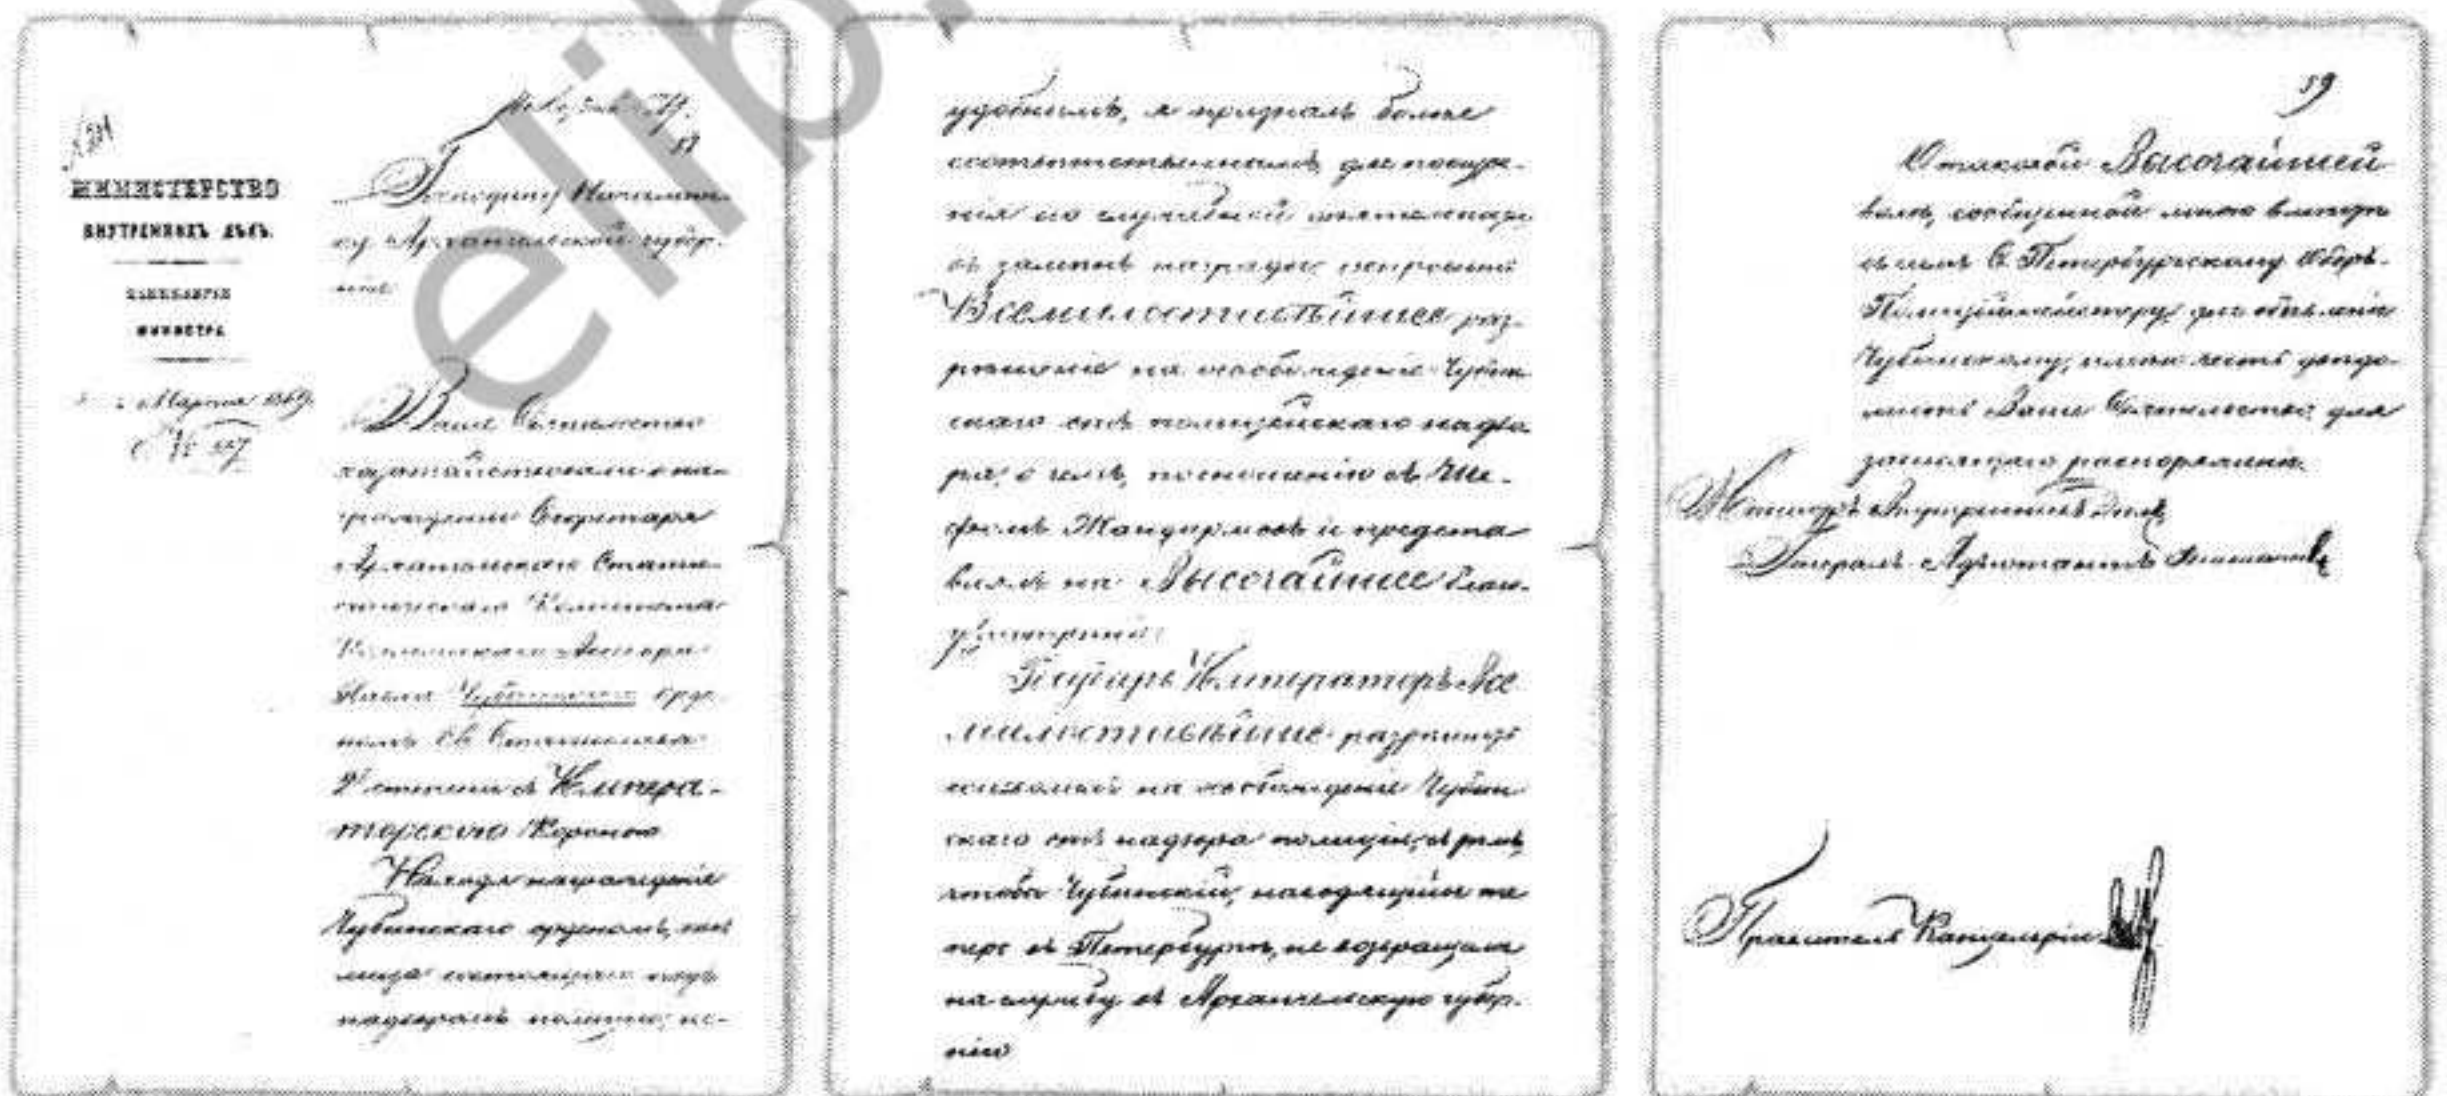 МИНИСТЕРСТВО
ВНУТРЕННИХЪ ДѢЛЪ.
КАНЦЕЛЯРІЯ
МИНИСТРА
Марта 1869.
№
Господину Начальни-
ку Архангельской губер-
ніи
Ваше Сіятельство
ходатайствовали о на-
гражденіи Секретаря
Архангельскаго Стати-
стическаго Комитета
Павла Чубинскаго орде-
номъ Св. Станислава
2й степени съ Импера-
торскою Короною
Находя награжденіе
Чубинскаго орденомъ, какъ
лица состоящаго подъ
надзоромъ полиціи, не-
удобнымъ, я призналъ болѣе
соотвѣтственнымъ для поощре-
нія его служебной дѣятельности
въ замѣнъ награды испросить
Всемилостивѣйшее раз-
рѣшеніе на освобожденіе Чубин-
скаго отъ полицейскаго надзо-
ра, о чемъ, по сношенію съ Ше-
фомъ Жандармовъ и представ
лялъ на Высочайшее благо-
усмотрѣніе.
Государь Императоръ Все
милостивѣйше разрѣшилъ
соизволилъ на освобожденіе Чубин
скаго отъ надзора полиціи, съ тѣмъ,
чтобы Чубинскій, находящійся те
перь въ Петербургѣ, не возвращался
на службу въ Архангельскую губер-
нію
59
О таковой Высочайшей
волѣ, сообщенной мною вмѣстѣ
съ симъ С. Петербургскому Оберъ-
Полицеймейстеру, для объявленія
Чубинскому, имѣю честь увѣдо-
мить Ваше Сіятельство для
зависящаго распоряженія.
Министръ Внутреннихъ Дѣлъ
Генералъ-Адъютантъ Тимашевъ
Правитель Канцеляріи
elib.